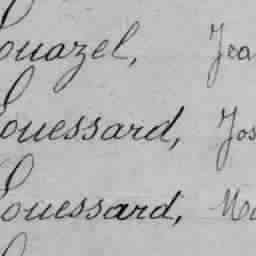 Louazel, Jea
Louessard, Jos
Louessard, Ma